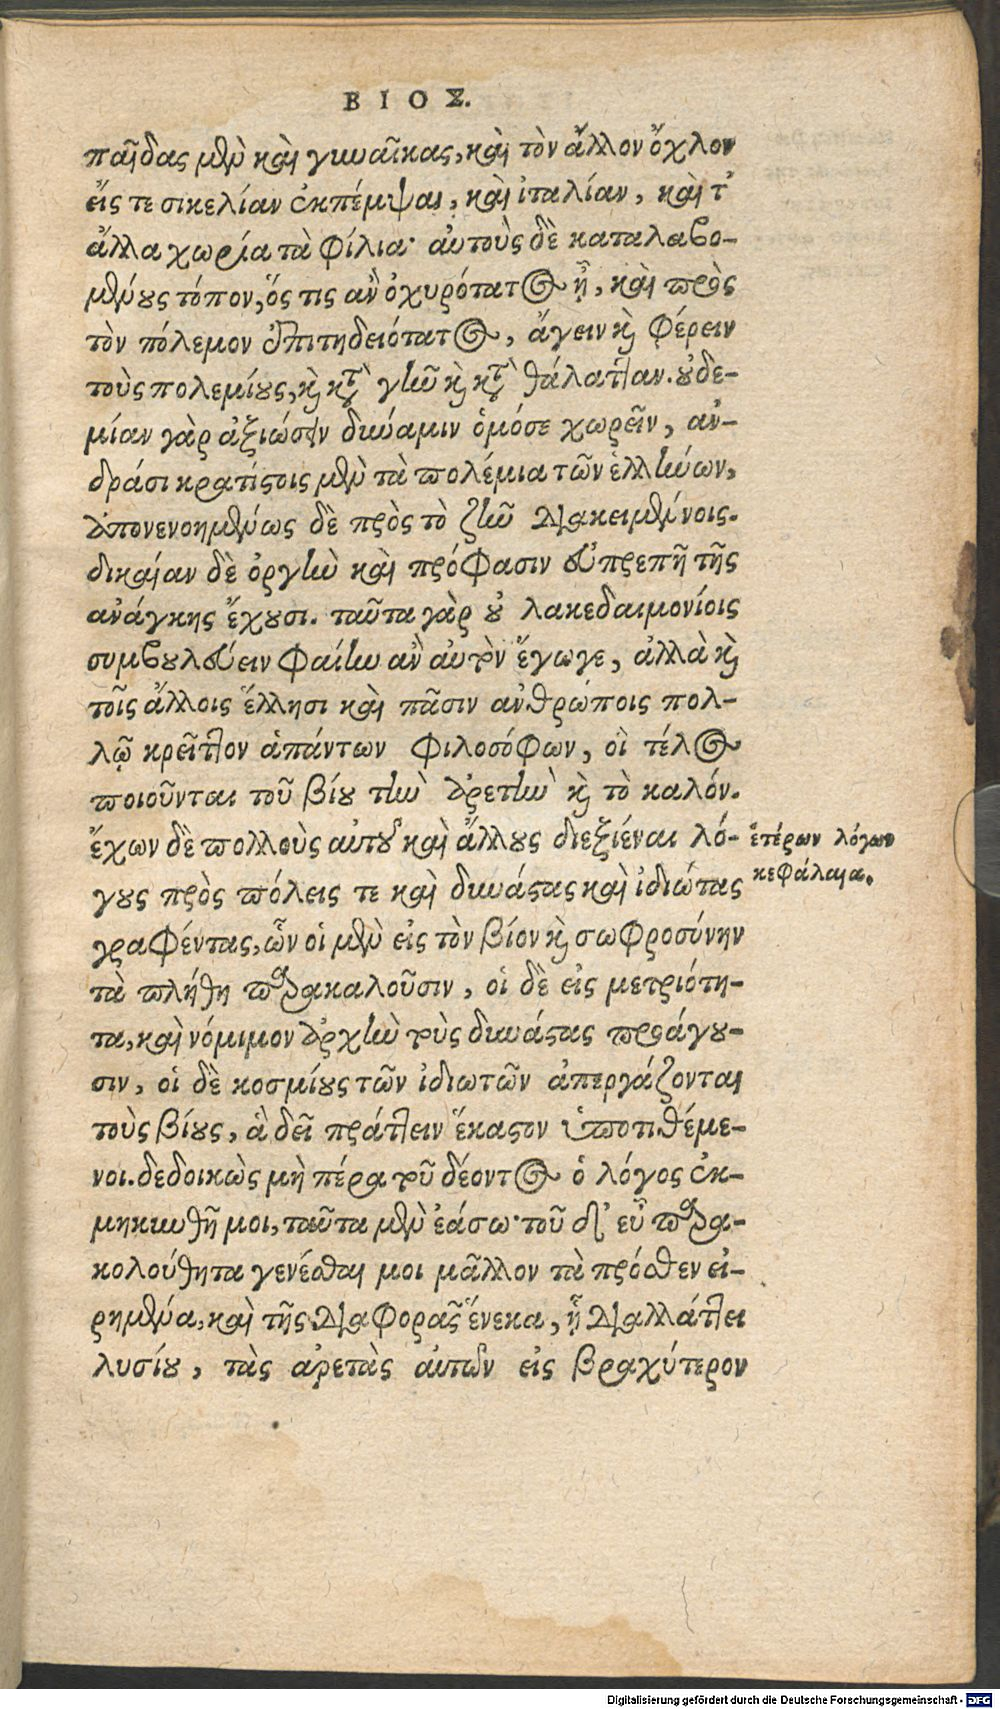 ΒΙΟΣ.
παῖδας μὲν καὶ γυναῖκας, καὶ τὸν ἄλλον ὄχλον
εἴς τε σικελίαν ἐκπέμψαι, καὶ ἰταλίαν, καὶ τ'
ἄλλα χωρία τὰ φίλια· αὐτοὺς δὲ καταλαβο-
μένους τόπον, ὅς τις ἂν ὀχυρότατος ᾖ, καὶ πρὸς
τὸν πόλεμον ἐπιτηδειότατος, ἄγειν καὶ φέρειν
τοὺς πολεμίους, καὶ κατὰ γῆν καὶ κατὰ θάλατταν. οὐδε-
μίαν γὰρ ἀξιώσειν δύναμιν ὁμόσε χωρεῖν, ἀν-
δράσι κρατίστοις μὲν τὰ πολέμια τῶν ἑλλήνων,
ἀπονενοημένως δὲ πρὸς τὸ ζῆν διακειμένοις.
δικαίαν δὲ ὀργὴν καὶ πρόφασιν εὐπρεπῆ τῆς
ἀνάγκης ἔχουσι. ταῦτα γὰρ οὐ λακεδαιμονίοις
συμβουλεύειν φαίην ἂν αὐτὸν ἔγωγε, ἀλλὰ καὶ
τοῖς ἄλλοις ἕλλησι καὶ πᾶσιν ἀνθρώποις πολ-
λῷ κρεῖττον ἁπάντων φιλοσόφων, οἳ τέλος
ποιοῦνται τοῦ βίου τὴν ἀρετὴν καὶ τὸ καλόν.
ἔχων δὲ πολλοὺς αὐτοῦ καὶ ἄλλους διεξιέναι λό-
γους πρὸς πόλεις τε καὶ δυνάστας καὶ ἰδιώτας
γραφέντας, ὧν οἱ μὲν εἰς τὸν βίον καὶ σωφροσύνην
τὰ πλήθη παρακαλοῦσιν, οἱ δὲ εἰς μετριότη-
τα, καὶ νόμιμον ἀρχὴν τοὺς δυνάστας προάγου-
σιν, οἱ δὲ κοσμίους τῶν ἰδιωτῶν ἀπεργάζονται
τοὺς βίους, ἃ δεῖ πράττειν ἕκαστον ὑποτιθέμε-
νοι. δεδοικὼς μὴ πέρα τοῦ δέοντος ὁ λόγος ἐκ-
μηκυνθῇ μοι, ταῦτα μὲν ἐάσω· τοῦ δ' εὖ παρα-
κολούθητα γενέσθαι μοι μᾶλλον τὰ πρόσθεν εἰ-
ρημένα, καὶ τῆς διαφορᾶς ἕνεκα, ᾗ διαλλάττει
λυσίου, τὰς ἀρετὰς αὐτῶν εἰς βραχύτερον
ἑτέρων λόγων
κεφάλαια.
Digitalisierung gefördert durch die Deutsche Forschungsgemeinschaft - DFG